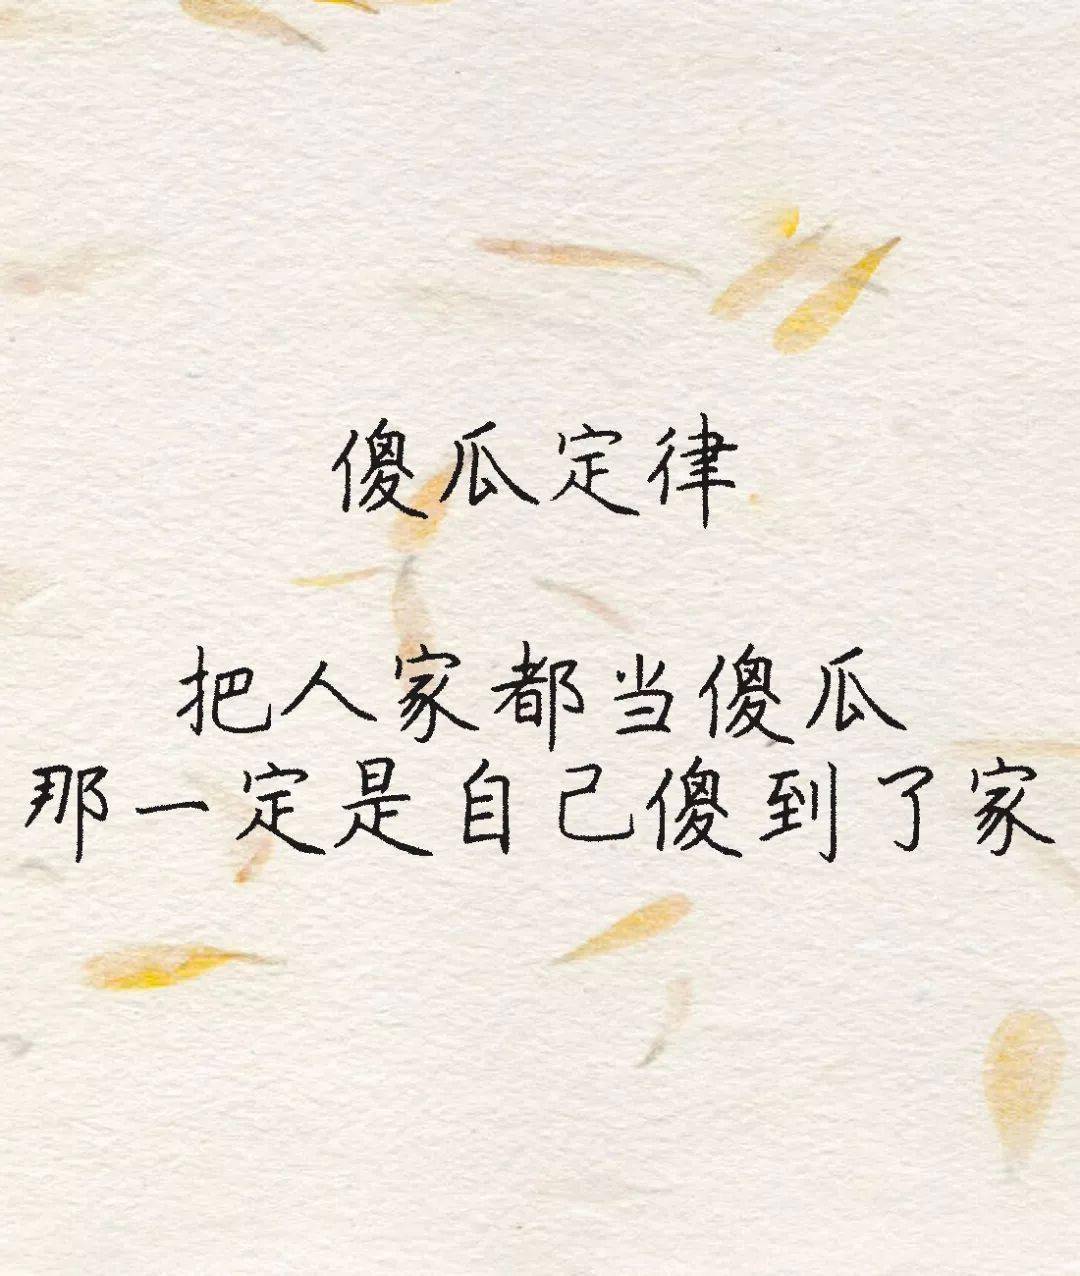 傻瓜定律
把人家都当傻瓜
那一定是自己傻到了家